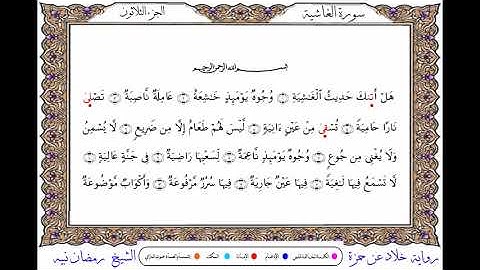 سورة الغاشية
الجزء الثلاثون
بسم الله الرحمن الرحيم
هَلْ أَتَىٰكَ حَدِيثُ ٱلْغَٰشِيَةِ ۝ وُجُوهٌ يَوْمَئِذٍ خَٰشِعَةٌ ۝ عَامِلَةٌ نَّاصِبَةٌ ۝ تَصْلَىٰ
نَارًا حَامِيَةً ۝ تُسْقَىٰ مِنْ عَيْنٍ ءَانِيَةٍ ۝ لَّيْسَ لَهُمْ طَعَامٌ إِلَّا مِن ضَرِيعٍ ۝ لَّا يُسْمِنُ
وَلَا يُغْنِى مِن جُوعٍ ۝ وُجُوهٌ يَوْمَئِذٍ نَّاعِمَةٌ ۝ لِّسَعْيِهَا رَاضِيَةٌ ۝ فِى جَنَّةٍ عَالِيَةٍ ۝
لَّا تَسْمَعُ فِيهَا لَٰغِيَةً ۝ فِيهَا عَيْنٌ جَارِيَةٌ ۝ فِيهَا سُرُرٌ مَّرْفُوعَةٌ ۝ وَأَكْوَابٌ مَّوْضُوعَةٌ ۝
رواية خلاد عن حمزة
الشيخ رمضان نبيه